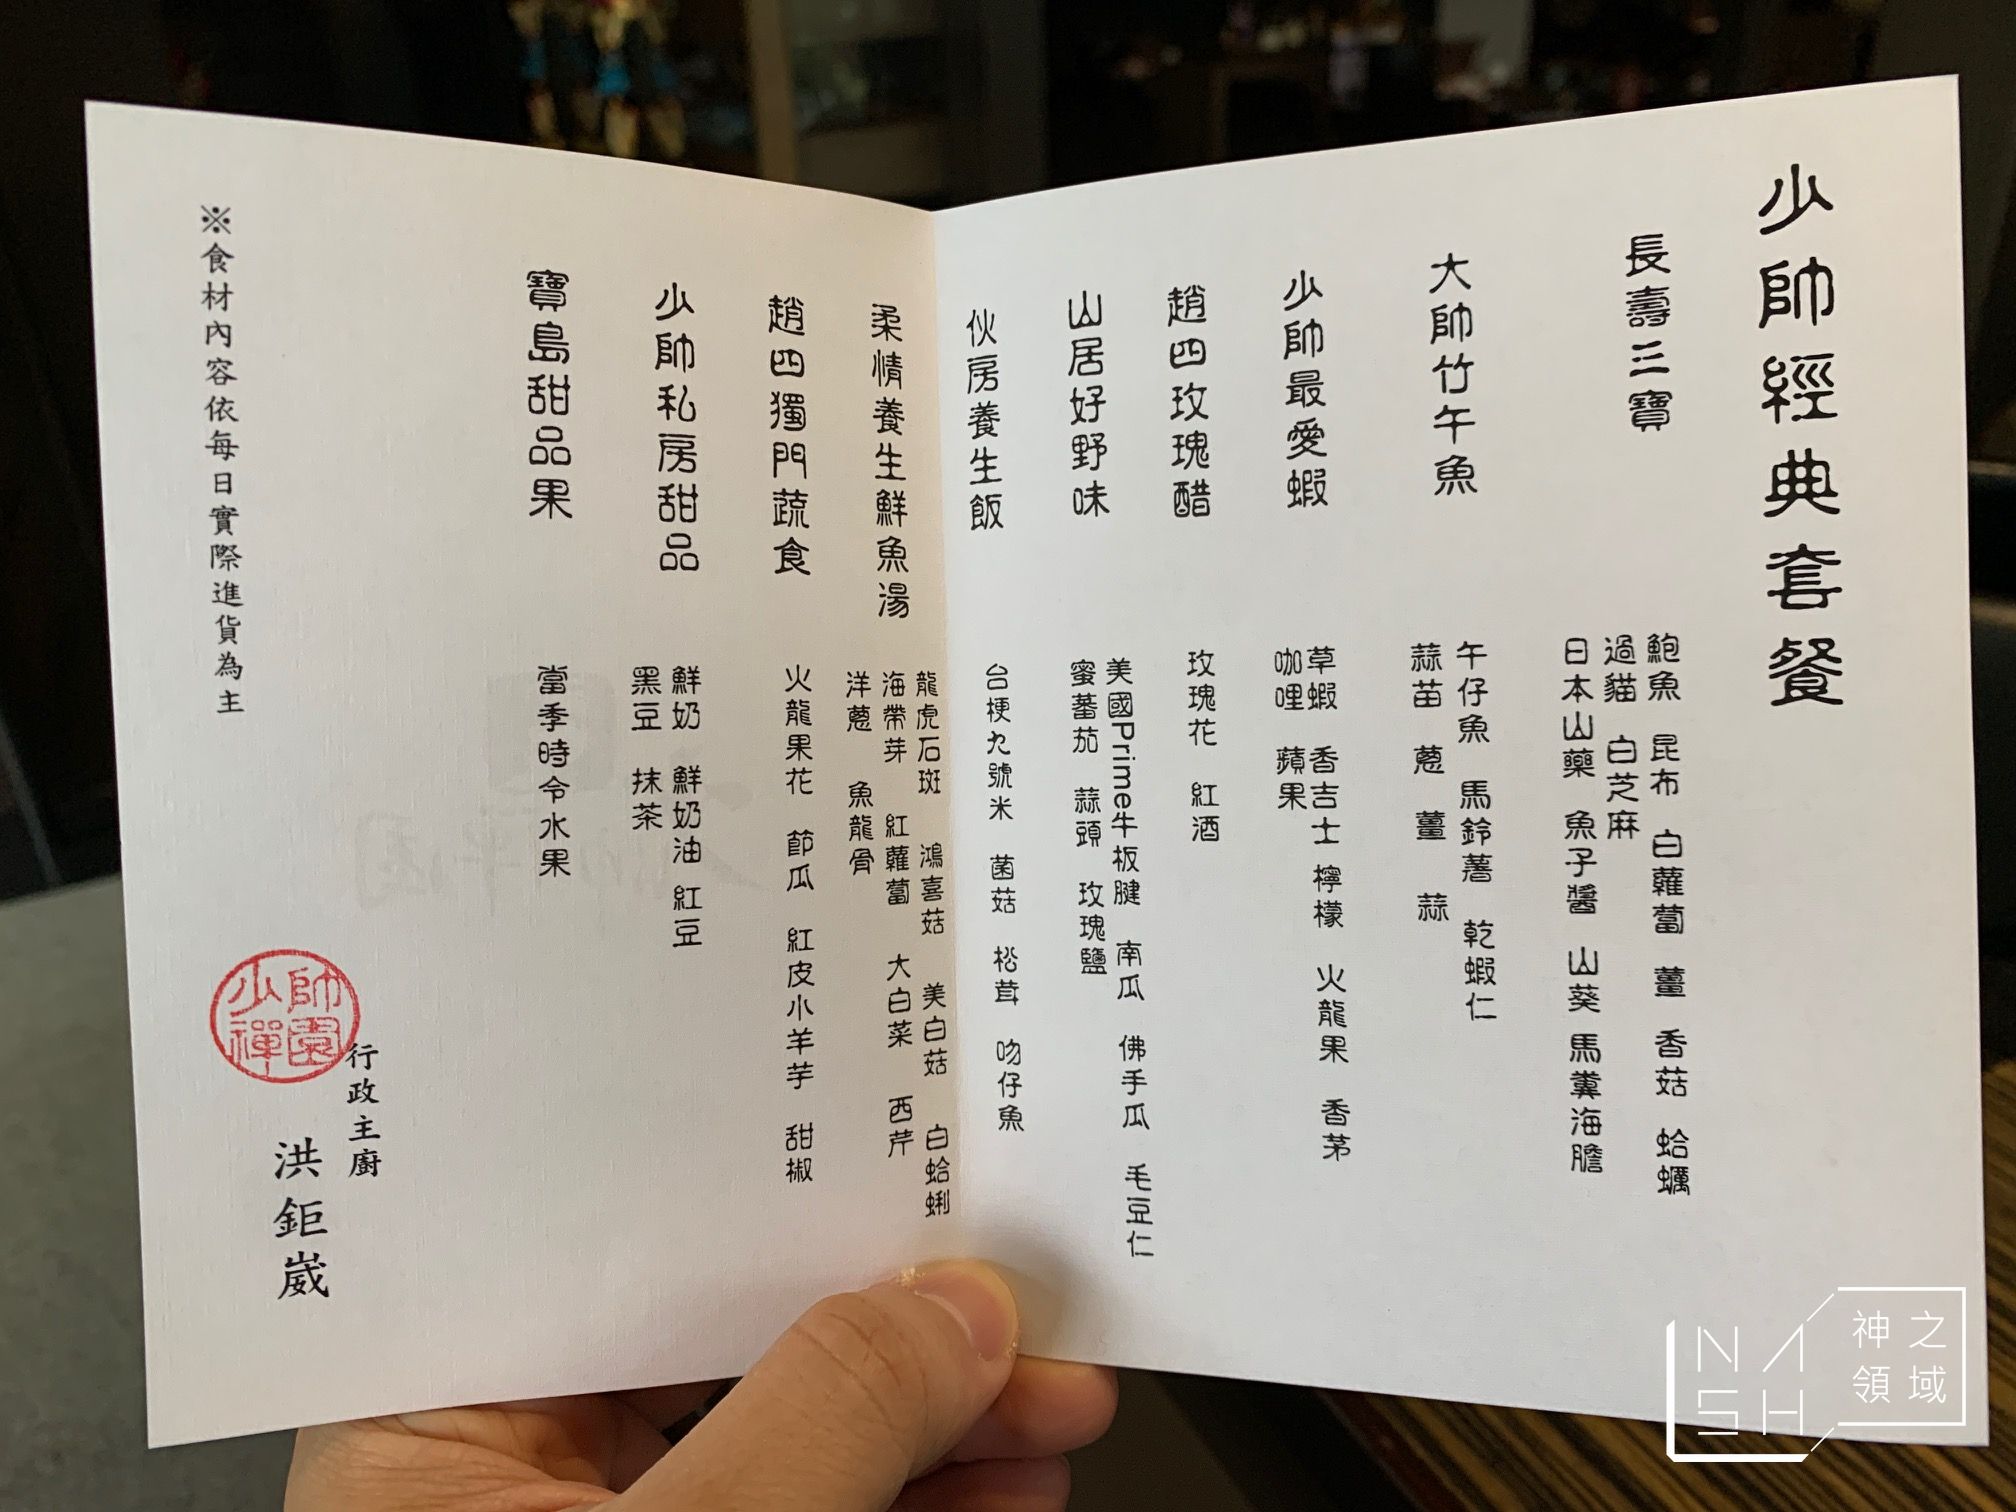 少帥經典套餐
長壽三寶
鮑魚 昆布 白蘿蔔 薑 香菇 蛤蠣
過貓 白芝麻
日本山藥 魚子醬 山葵 馬糞海膽
大帥竹午魚
午仔魚 馬鈴薯 乾蝦仁
蒜苗 蔥 薑 蒜
少帥最愛蝦
草蝦 香吉士 檸檬 火龍果 香茅
咖哩 蘋果
趙四玫瑰醋
玫瑰花 紅酒
山居好野味
美國Prime牛板腱 南瓜 佛手瓜 毛豆仁
蜜蕃茄 蒜頭 玫瑰鹽
伙房養生飯
台梗九號米 菌菇 松茸 吻仔魚
柔情養生鮮魚湯
龍虎石斑 鴻喜菇 美白菇 白蛤蜊
海帶芽 紅蘿蔔 大白菜 西芹
洋蔥 魚龍骨
趙四獨門蔬食
火龍果花 節瓜 紅皮小羊芋 甜椒
少帥私房甜品
鮮奶 鮮奶油 紅豆
黑豆 抹茶
寶島甜品果
當季時令水果
行政主廚
洪鉅崴
少帥禪園
※食材內容依每日實際進貨為主
NASH
神之領域